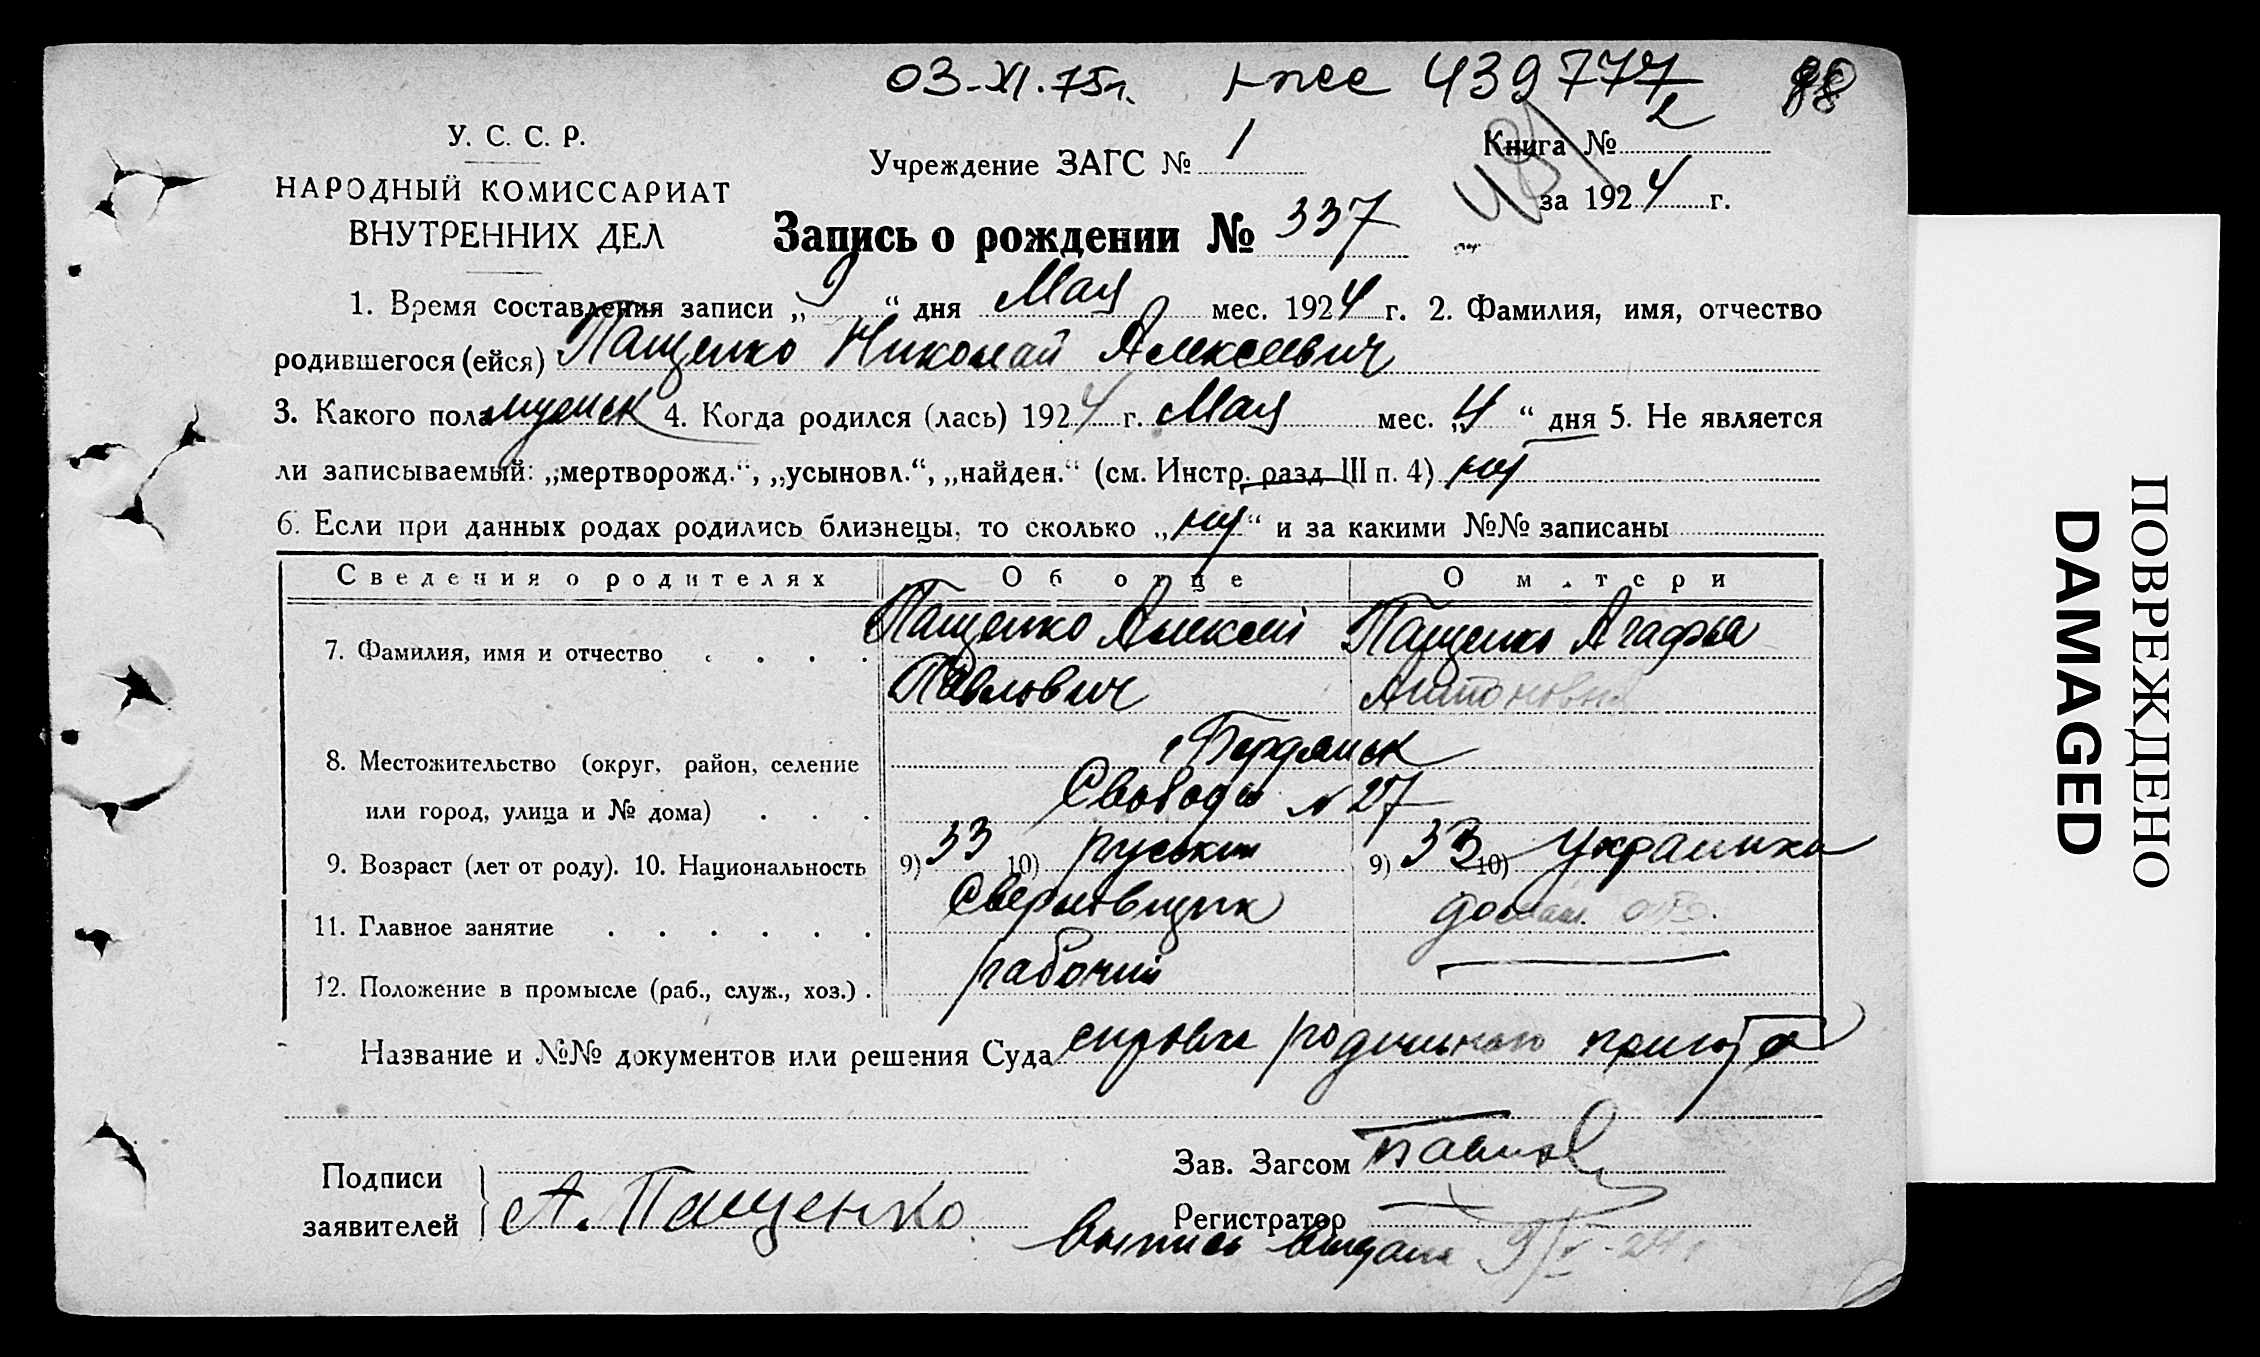 03-XI.75г. 439777 98
У. С. С. Р.
НАРОДНЫЙ КОМИССАРИАТ
ВНУТРЕННИХ ДЕЛ
Учреждение ЗАГС № 1
Книга № 2
за 1924 г.
481
Запись о рождении № 337
1. Время составления записи „9“ дня Мая мес. 1924 г. 2. Фамилия, имя, отчество
родившегося (ейся) Пащенко Николай Алексеевич
3. Какого пола мужск 4. Когда родился (лась) 1924 г. Мая мес. „4“ дня 5. Не является
ли записываемый: „мертворожд.“, „усыновл.“, „найден.“ (см. Инстр. разд. III п. 4) нет
6. Если при данных родах родились близнецы, то сколько „нет“ и за какими №№ записаны
Сведения о родителях Об отце О матери
7. Фамилия, имя и отчество . . . . Пащенко Алексей Пащенко Агафья
Павлович Антоновна
8. Местожительство (округ, район, селение г Бердянск
или город, улица и № дома) . . . Свободы № 27
9. Возраст (лет от роду). 10. Национальность 9) 33 10) русский 9) 33 10) Украинка
11. Главное занятие . . . . . . Сверловщик домаш.
12. Положение в промысле (раб., служ., хоз.) . рабочий
Название и №№ документов или решения Суда справка родильного приюта
Подписи
заявителей
А. Пащенко
Зав. Загсом
Регистратор
Выпись выдана 9/V-24г
ПОВРЕЖДЕНО
DAMAGED